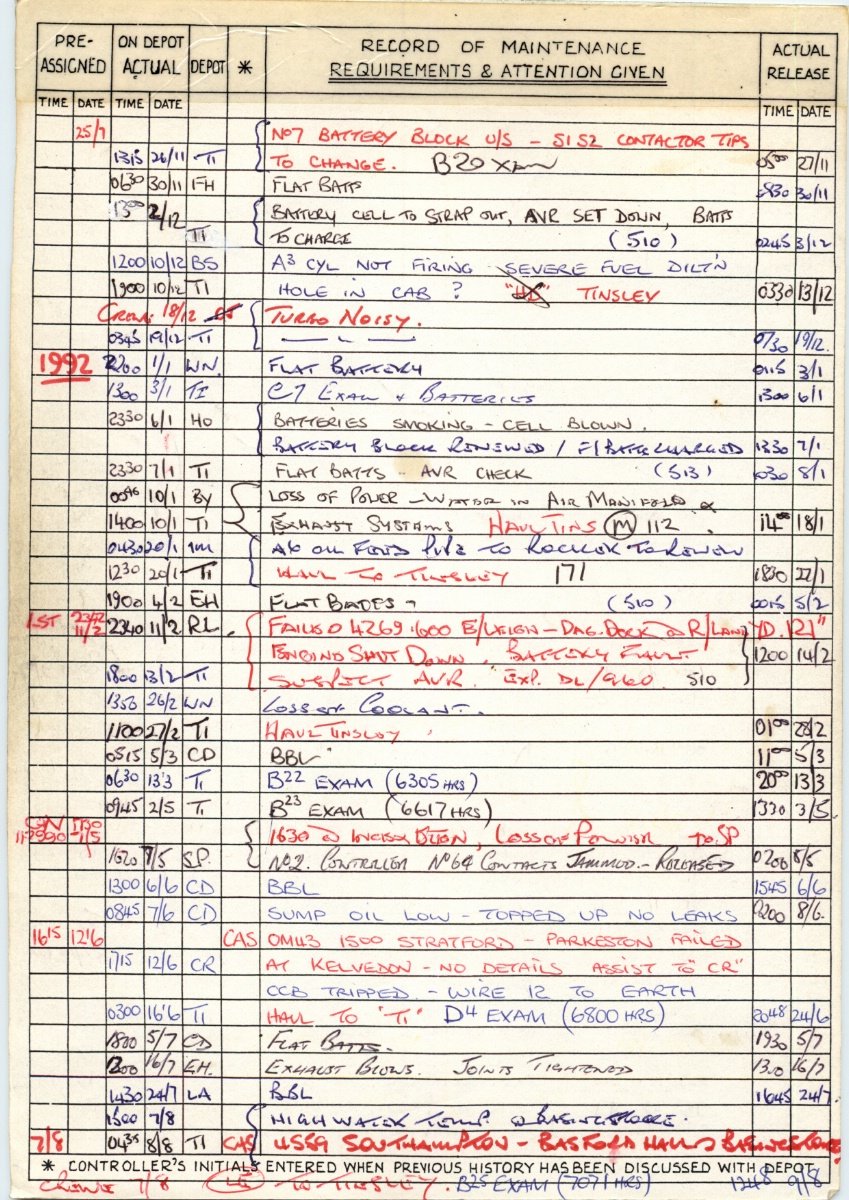 PRE-ASSIGNED ON DEPOT ACTUAL DEPOT * RECORD OF MAINTENANCE REQUIREMENTS & ATTENTION GIVEN ACTUAL RELEASE
TIME DATE TIME DATE TIME DATE
25/7 No7 BATTERY BLOCK U/S - S1 S2 CONTACTOR TIPS
1315 26/11 TI TO CHANGE. B20 XAM 0500 27/11
0630 30/11 FH FLAT BATTS 0830 30/11
1300 2/12 BATTERY CELL TO STRAP OUT, AVR SET DOWN, BATTS
TI TO CHARGE (510) 0245 3/12
1200 10/12 BS A3 CYL NOT FIRING - SEVERE FUEL DILT'N
1900 10/12 TI HOLE IN CAB ? TINSLEY 0330 13/12
CREWE 18/12 TURBO NOISY.
0345 19/12 TI — " — 0730 19/12.
1992 2200 1/1 WN. FLAT BATTERY 0115 3/1
1300 3/1 TI C7 EXAM & BATTERIES 1300 6/1
2330 6/1 HO BATTERIES SMOKING - CELL BLOWN.
BATTERY BLOCK RENEWED / F/BATTS CHARGED 1330 7/1
2330 7/1 TI FLAT BATTS - AVR CHECK (513) 1030 8/1
10/1 BY LOSS OF POWER - WATER IN AIR MANIFOLD &
1400 10/1 TI EXHAUST SYSTEMS HAUL TINS (M) 112. 1400 18/1
0430 20/1 IM A6 OIL FEED PIPE TO ROCKER TO RENEW
1230 20/1 TI HAUL TO TINSLEY 171 1830 22/1
1900 4/2 EH FLAT (510) 0015 5/2
LST 11/2 2340 11/2 RL. FAILED 4269 1600 - DAG. DOCK @ R/LAND YD.
ENGINE SHUT DOWN. BATTERY FAULT 1200 14/2
1800 13/2 TI SUSPECT AVR. EXP. DL/960. 510
1350 26/2 WN LOSS OF COOLANT.
1100 27/2 TI HAUL TINSLEY 0100 28/2
0515 5/3 CD BBL 1100 5/3
0630 13.3 TI B22 EXAM (6305 HRS) 2000 13/3
0945 2/5 TI B23 EXAM (6617 HRS) 1330 3/5
1630 @ , LOSS OF POWER TO SP
1620 7/5 S.P. No2. CONTROLLER No64 CONTACTS JAMMED. - RELEASED 0200 8/5
1300 6/6 CD BBL 1545 6/6
0845 7/6 CD SUMP OIL LOW - TOPPED UP NO LEAKS 0200 8/6.
1615 12'6 CAS 0M43 1500 STRATFORD - PARKESTON FAILED
1715 12/6 CR AT KELVEDON - NO DETAILS ASSIST TO "CR"
CCB TRIPPED - WIRE 12 TO EARTH
0300 16'6 TI HAUL TO "TI" D4 EXAM (6800 HRS) 2048 24/6
1800 5/7 CD FLAT BATTS. 1930 5/7
1200 16/7 EH. EXHAUST BLOWS. JOINTS TIGHTENED 1300 16/7
1430 24/7 LA BBL 1645 24/7
1500 7/8 HIGH WATER TEMP @ BASINGSTOKE.
7/8 0435 8/8 TI CAS 4S59 SOUTHAMPTON - BASFORD HALL @ BASINGSTOKE
* CONTROLLER'S INITIALS ENTERED WHEN PREVIOUS HISTORY HAS BEEN DISCUSSED WITH DEPOT
CREWE 7/8 TO TINSLEY. B25 EXAM (7071 HRS) 1248 9/8